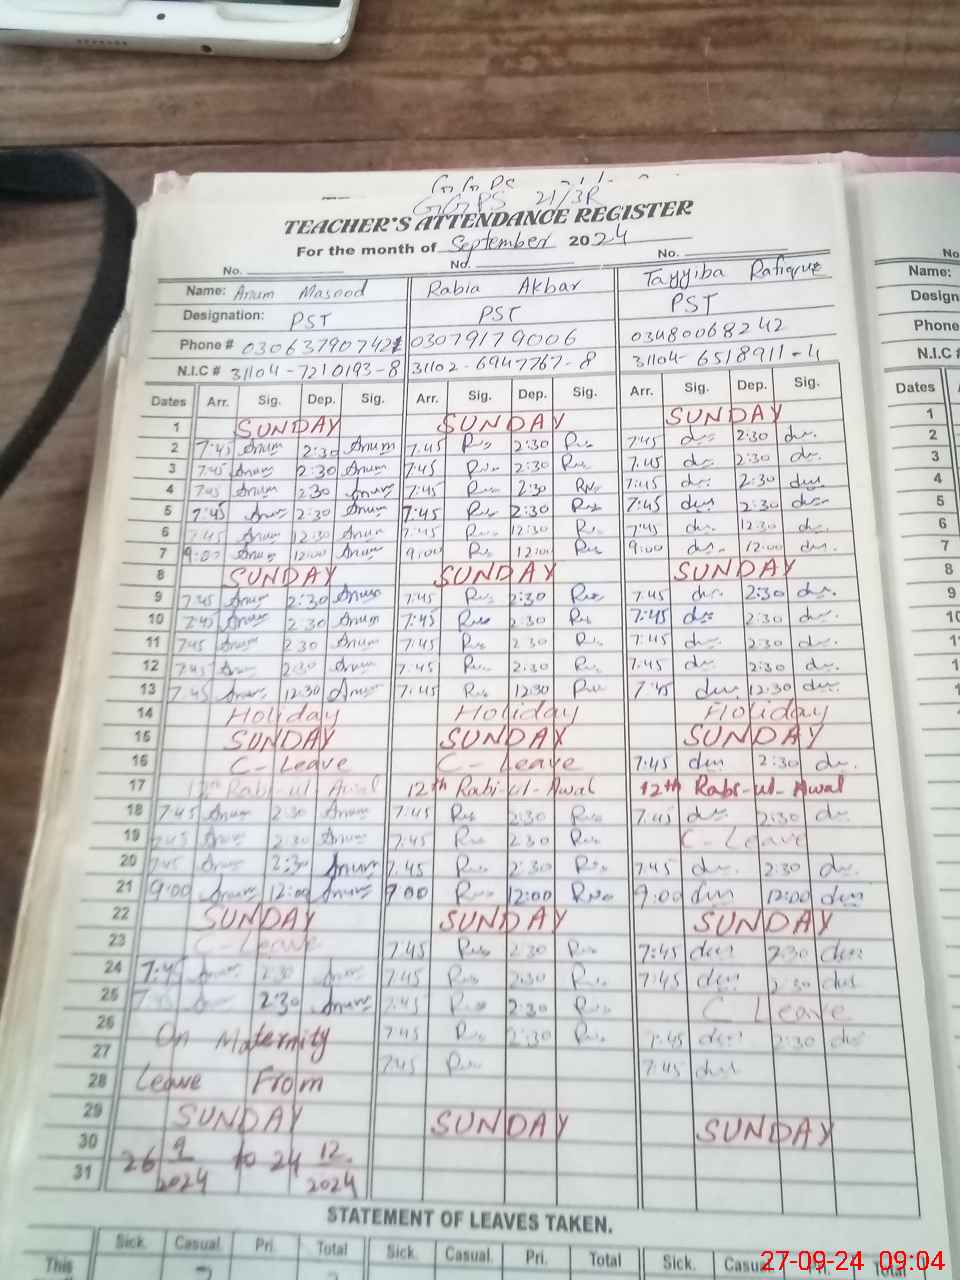 GGPS 21/3R
TEACHER'S ATTENDANCE REGISTER
For the month of September 2024
No. No. No.
Name: Anum Masood Rabia Akbar Tayyiba Rafique
Designation: PST PST PST
Phone # 03079179006 03480068242
N.I.C # 31104-7210193-8 31102-6947767-8 31104-6518911-4
Dates Arr. Sig. Dep. Sig. Arr. Sig. Dep. Sig. Arr. Sig. Dep. Sig.
1 SUNDAY SUNDAY SUNDAY
2 7:45 Anum 2:30 Anum 7:45 2:30 7:45 2:30
3 7:45 Anum 2:30 Anum 7:45 2:30 7:45 2:30
4 7:45 Anum 2:30 Anum 7:45 2:30 7:45 2:30
5 7:45 Anum 2:30 Anum 7:45 2:30 7:45 2:30
6 7:45 Anum 12:30 Anum 7:45 12:30 7:45 12:30
7 9:00 Anum 12:00 Anum 9:00 12:00 9:00 12:00
8 SUNDAY SUNDAY SUNDAY
9 7:45 Anum 2:30 Anum 7:45 2:30 7:45 2:30
10 7:45 Anum 2:30 Anum 7:45 2:30 7:45 2:30
11 7:45 Anum 2:30 Anum 7:45 2:30 7:45 2:30
12 7:45 Anum 2:30 Anum 7:45 2:30 7:45 2:30
13 7:45 Anum 12:30 Anum 7:45 12:30 7:45 12:30
14 Holiday Holiday Holiday
15 SUNDAY SUNDAY SUNDAY
16 C-Leave C-Leave 7:45 2:30
17 12th Rabi-ul-Awal 12th Rabi-ul-Awal 12th Rabi-ul-Awal
18 7:45 Anum 2:30 Anum 7:45 2:30 7:45 2:30
19 7:45 Anum 2:30 Anum 7:45 2:30 C-Leave
20 7:45 Anum 2:30 Anum 7:45 2:30 7:45 2:30
21 9:00 Anum 12:00 Anum 9:00 12:00 9:00 12:00
22 SUNDAY SUNDAY SUNDAY
23 C-Leave 7:45 2:30 7:45 2:30
24 7:45 Anum 2:30 Anum 7:45 2:30 7:45 2:30
25 7:45 Anum 2:30 Anum 7:45 2:30 C Leave
26 On Maternity 7:45 2:30 7:45 2:30
27 7:45 7:45
28 Leave From
29 SUNDAY SUNDAY SUNDAY
30 26 9/2024 to 24 12./2024
31
STATEMENT OF LEAVES TAKEN.
Sick. Casual Pri. Total Sick. Casual. Pri. Total Sick. Casual Pri. Total
This
No
Name:
Phone
N.I.C #
Dates
1
2
3
4
5
6
7
8
9
10
27-09-24 09:04